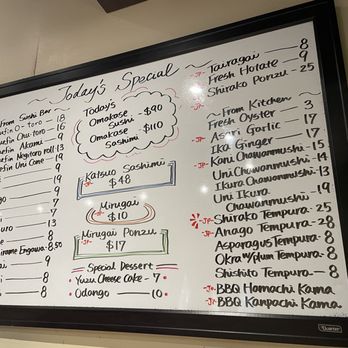 Today's Special
From Sushi Bar
uefin O-toro - 18
uefin Chu-toro - 16
uefin Akami - 9
uefin Negitoro roll 13
uefin Uni Cone - 19
9
13
9
9
8
13
8
hirame Engawa 8.50
9
8
Today's
Omakase Sushi - $90
Omakase Sashimi - $110
Katsuo Sashimi
$48
Mirugai
$10
Mirugai Ponzu
$17
Special Dessert
Yuzu Cheese Cake - 7
Odango - 10
Tairagai - 8
Fresh Hotate - 9
-JP- Shirako Ponzu - 25
~From Kitchen~
Fresh Oyster - 3
-JP- Asari Garlic - 17
Ika Ginger - 17
Kani Chawanmushi - 15
Uni Chawanmushi - 14
Ikura Chawanmushi - 13
Uni Ikura
Chawanmushi - 19
-JP- Shirako Tempura - 25
-JP- Anago Tempura - 28
Asparagus Tempura - 8
Okra w/plum Tempura - 8
Shishito Tempura - 8
-JP- BBQ Hamachi Kama
-JP- BBQ Kanpachi Kama
Quartet